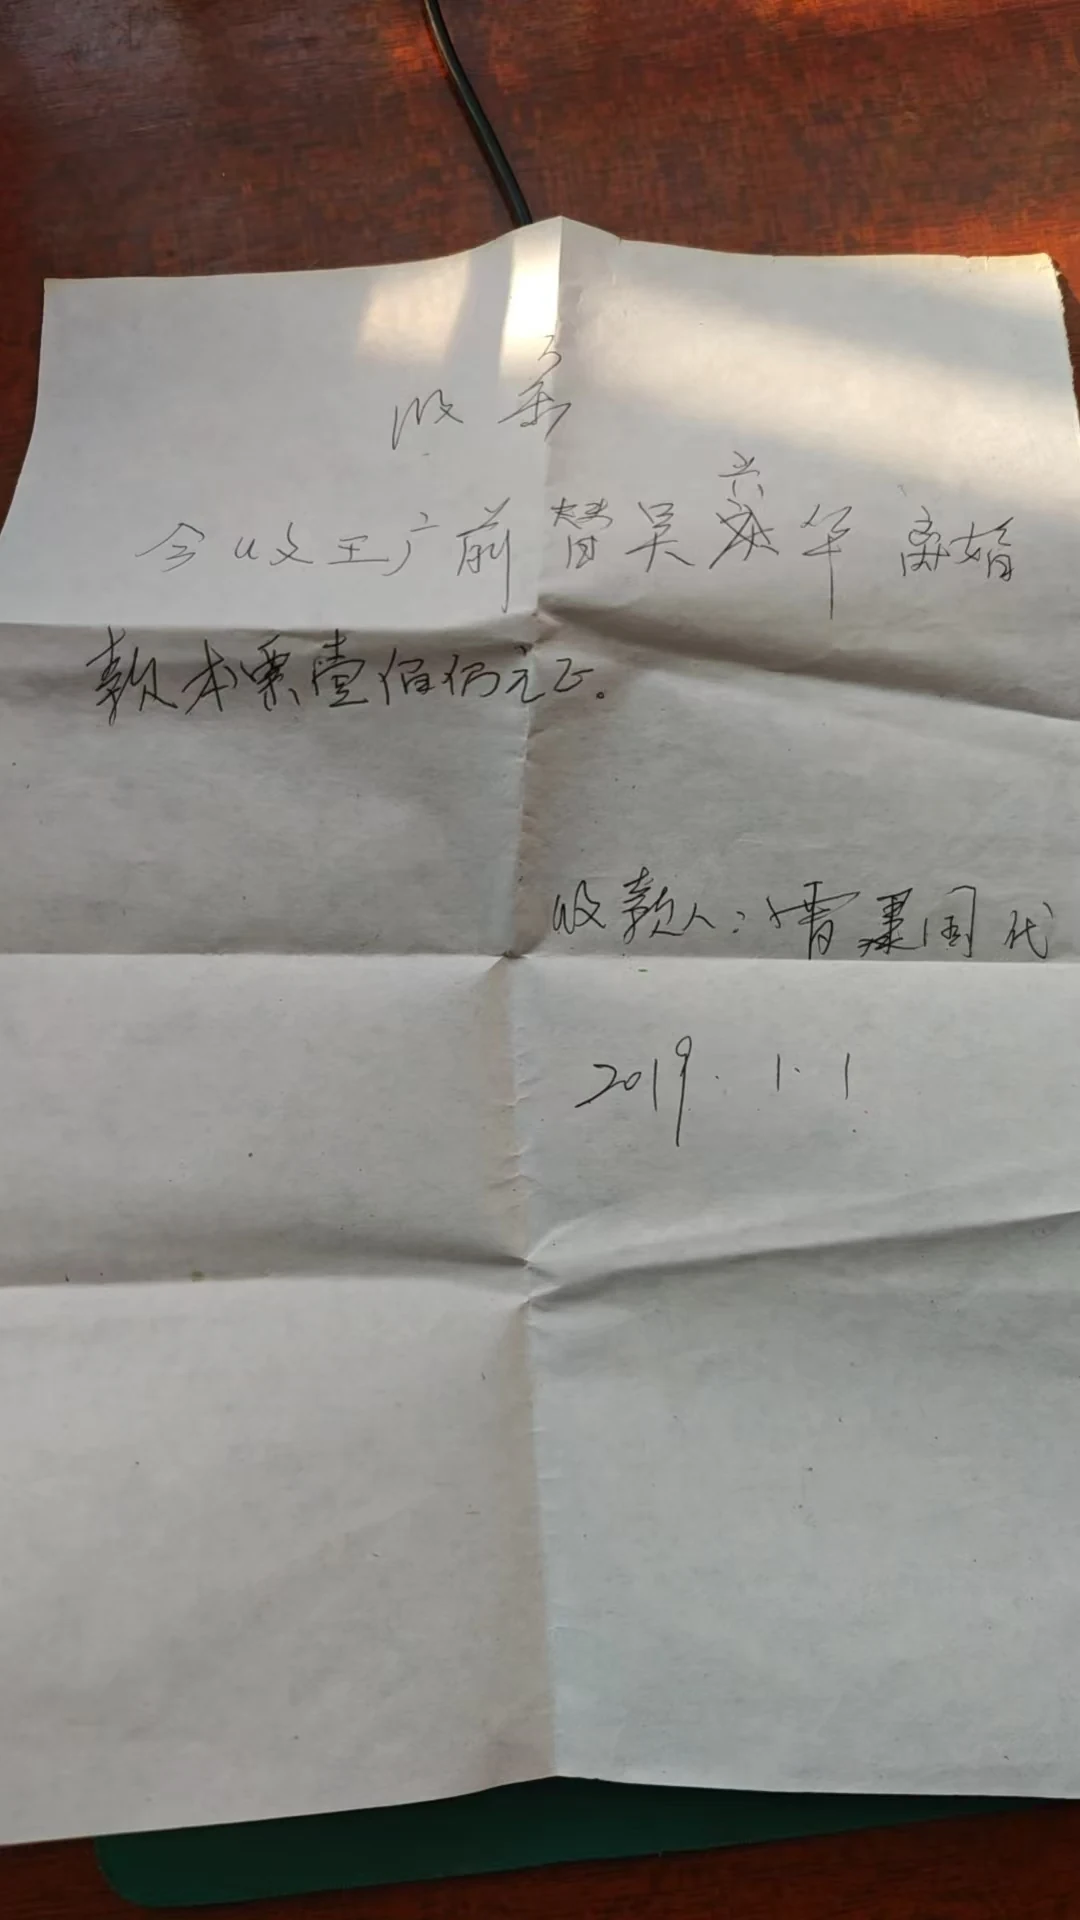 收条
今收王广前替吴兴华离婚
款本票壹佰仟元正。
收款人：国代
2019.1.1